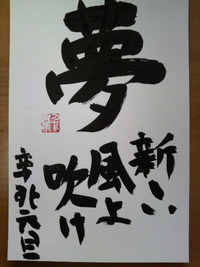 夢
新しい
風よ
吹け
辛卯元旦